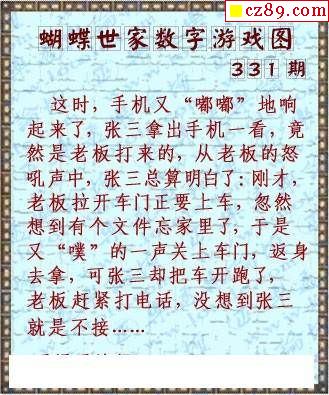 cz89.com
蝴蝶世家数字游戏图
331 期
这时，手机又“嘟嘟”地响
起来了，张三拿出手机一看，竟
然是老板打来的，从老板的怒
吼声中，张三总算明白了：刚才，
老板拉开车门正要上车，忽然
想到有个文件忘家里了，于是
又“噗”的一声关上车门，返身
去拿，可张三却把车开跑了，
老板赶紧打电话，没想到张三
就是不接……